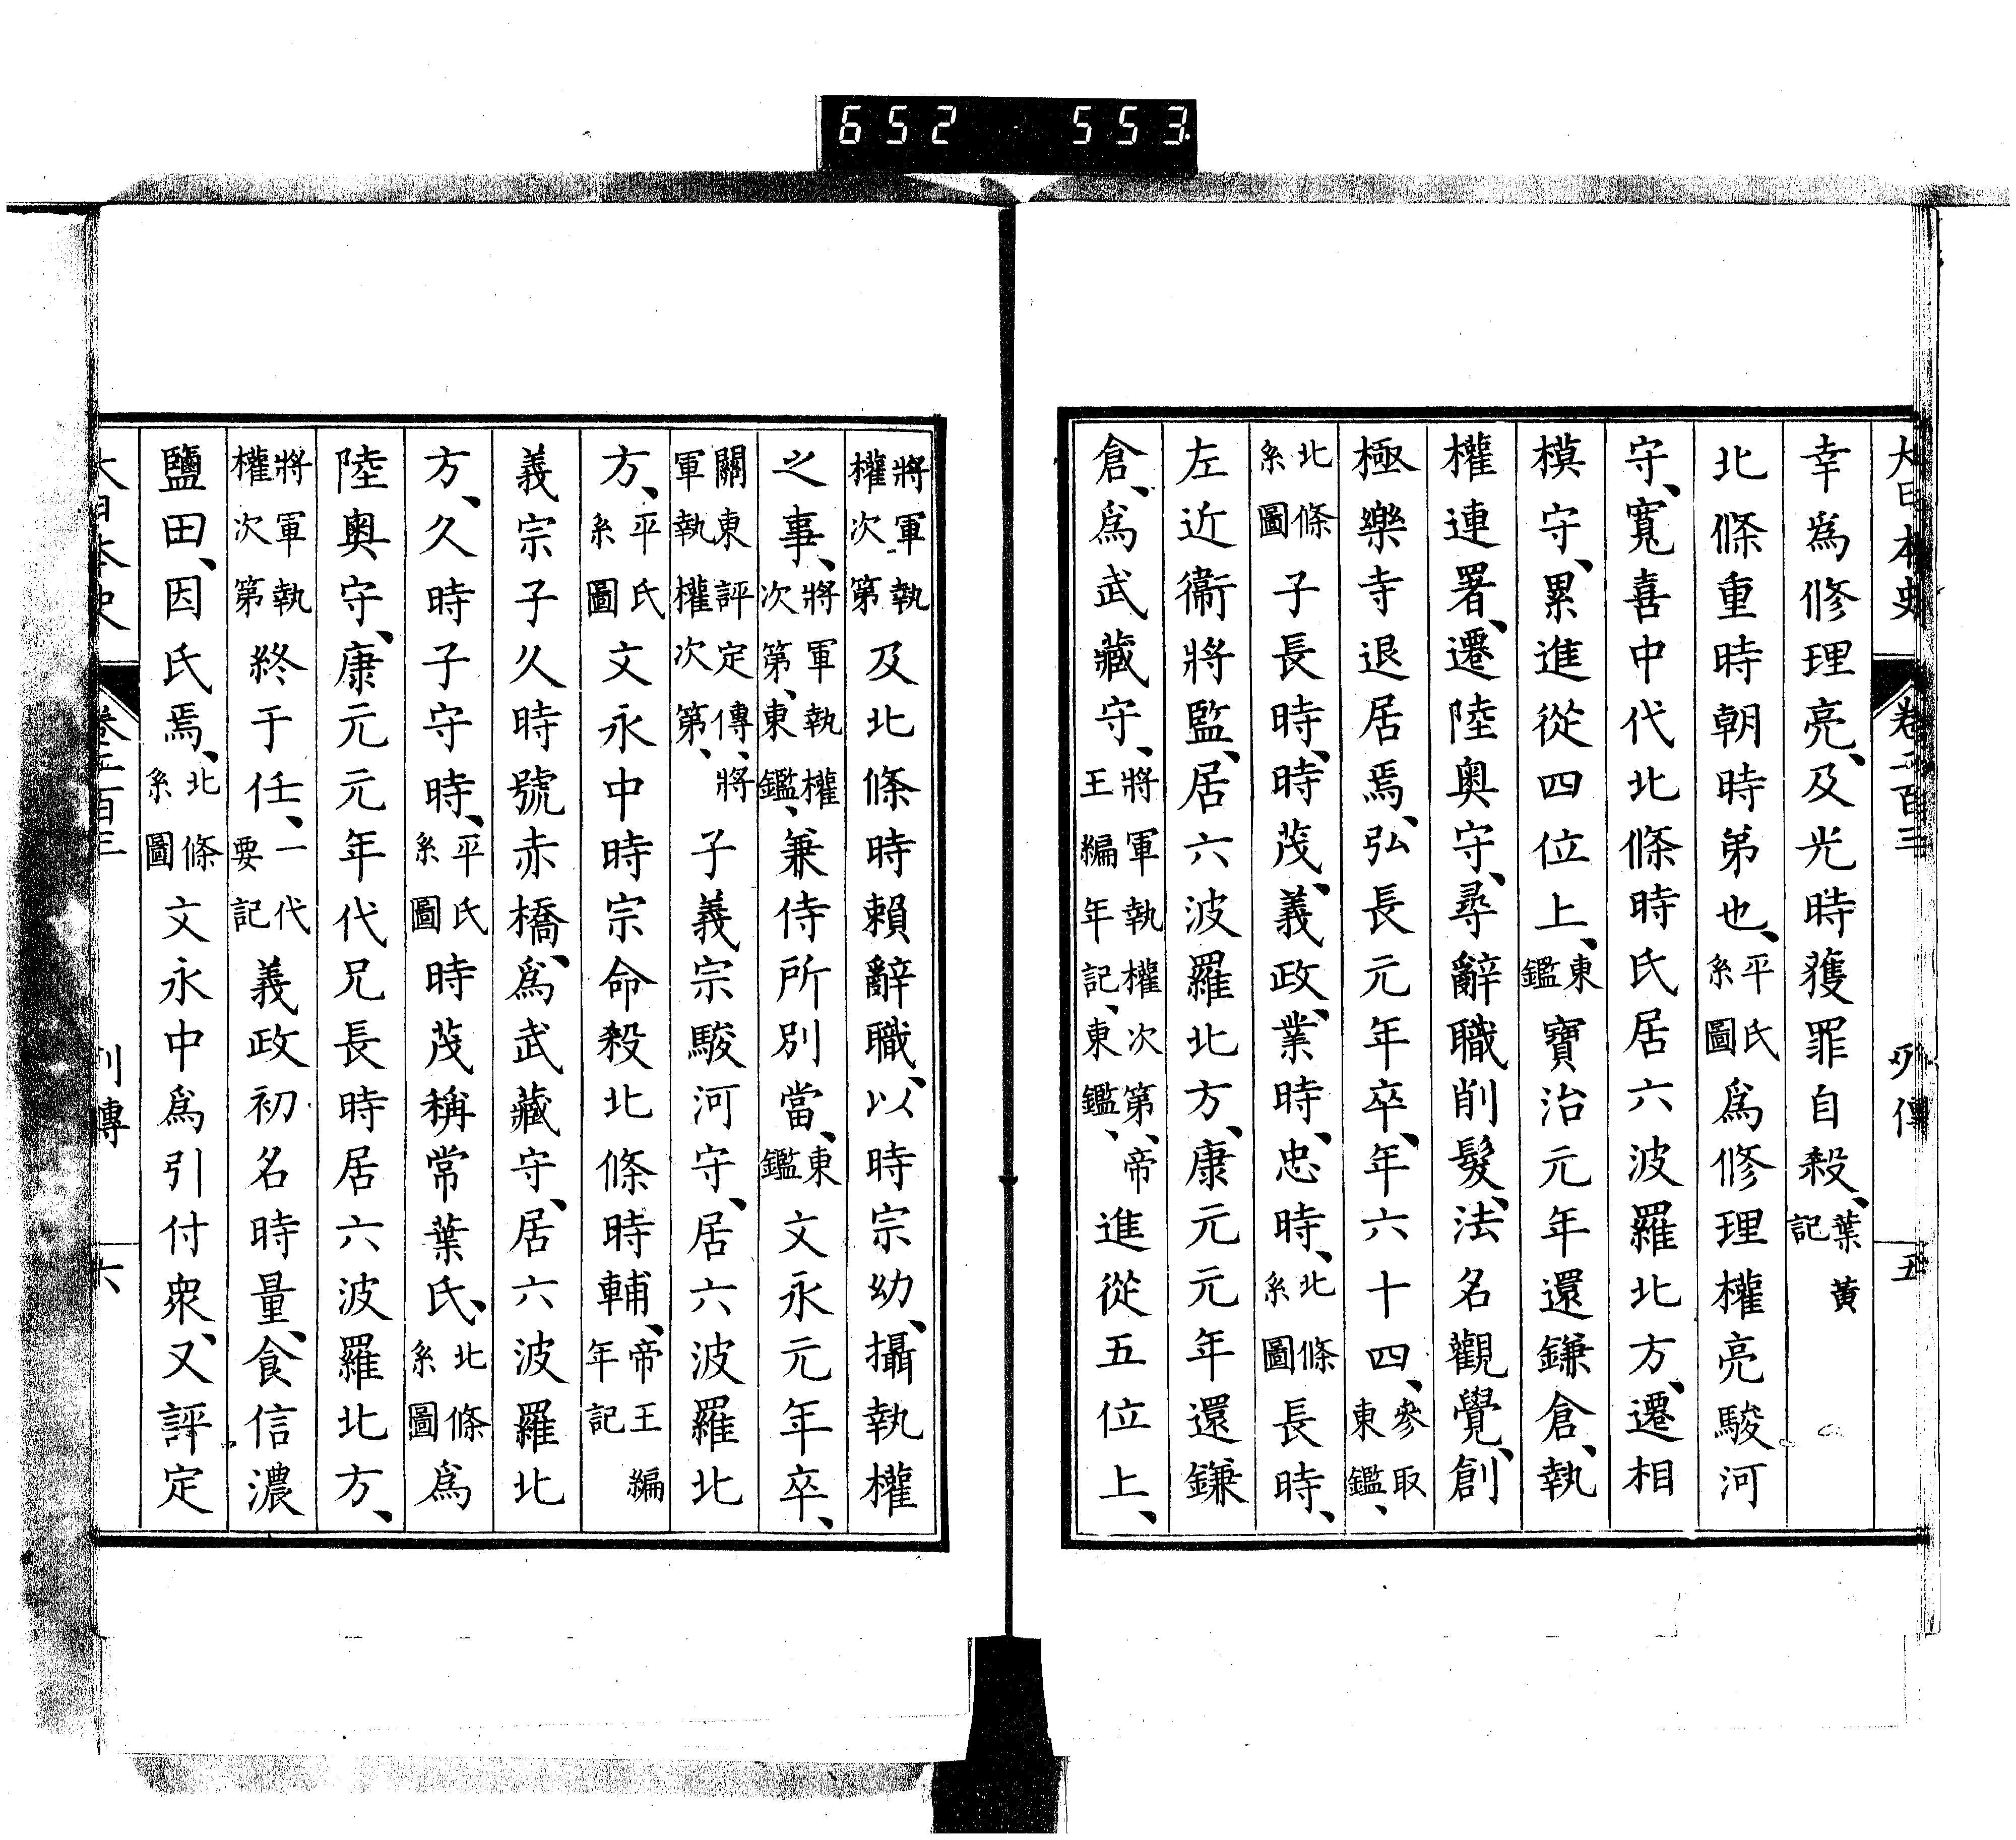 652 553
大日本史 卷二百三 列傳 五
幸爲修理亮、及光時獲罪自殺、葉黃記
北條重時朝時弟也、平氏系圖爲修理權亮駿河
守、寬喜中代北條時氏居六波羅北方、遷相
模守、累進從四位上、東鑑寶治元年還鎌倉、執
權連署、遷陸奧守、尋辭職削髮、法名觀覺、創
極樂寺退居焉、弘長元年卒、年六十四、參取東鑑、
北條系圖子長時、時茂、義政、業時、忠時、北條系圖長時、
左近衞將監、居六波羅北方、康元元年還鎌
倉、爲武藏守、將軍執權次第、帝王編年記、東鑑、進從五位上、
將軍執權次第及北條時賴辭職、以時宗幼、攝執權
之事、將軍執權次第、東鑑、兼侍所別當、東鑑文永元年卒、
關東評定傳、將軍執權次第、子義宗駿河守、居六波羅北
方、平氏系圖文永中時宗命殺北條時輔、帝王編年記
義宗子久時號赤橋、爲武藏守、居六波羅北
方、久時子守時、平氏系圖時茂稱常葉氏、北條系圖爲
陸奧守、康元元年代兄長時居六波羅北方、
將軍執權次第終于任、一代要記義政初名時量、食信濃
鹽田、因氏焉、北條系圖文永中爲引付衆、又評定
大日本史 卷二百三 列傳 六